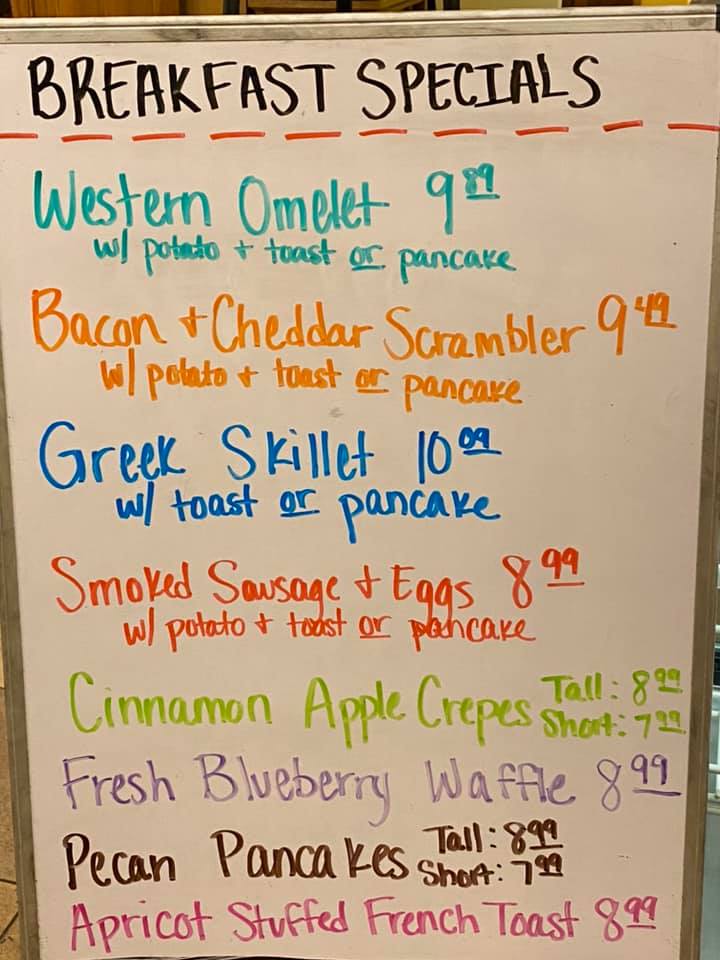 BREAKFAST SPECIALS
Western Omelet 9 89
w/ potato + toast or pancake
Bacon + Cheddar Scrambler 9 49
w/ potato + toast or pancake
Greek Skillet 10 09
w/ toast or pancake
Smoked Sausage + Eggs 8 99
w/ potato + toast or pancake
Cinnamon Apple Crepes Tall: 8 99
Short: 7 99
Fresh Blueberry Waffle 8 99
Pecan Pancakes Tall: 8 99
Short: 7 99
Apricot Stuffed French Toast 8 99